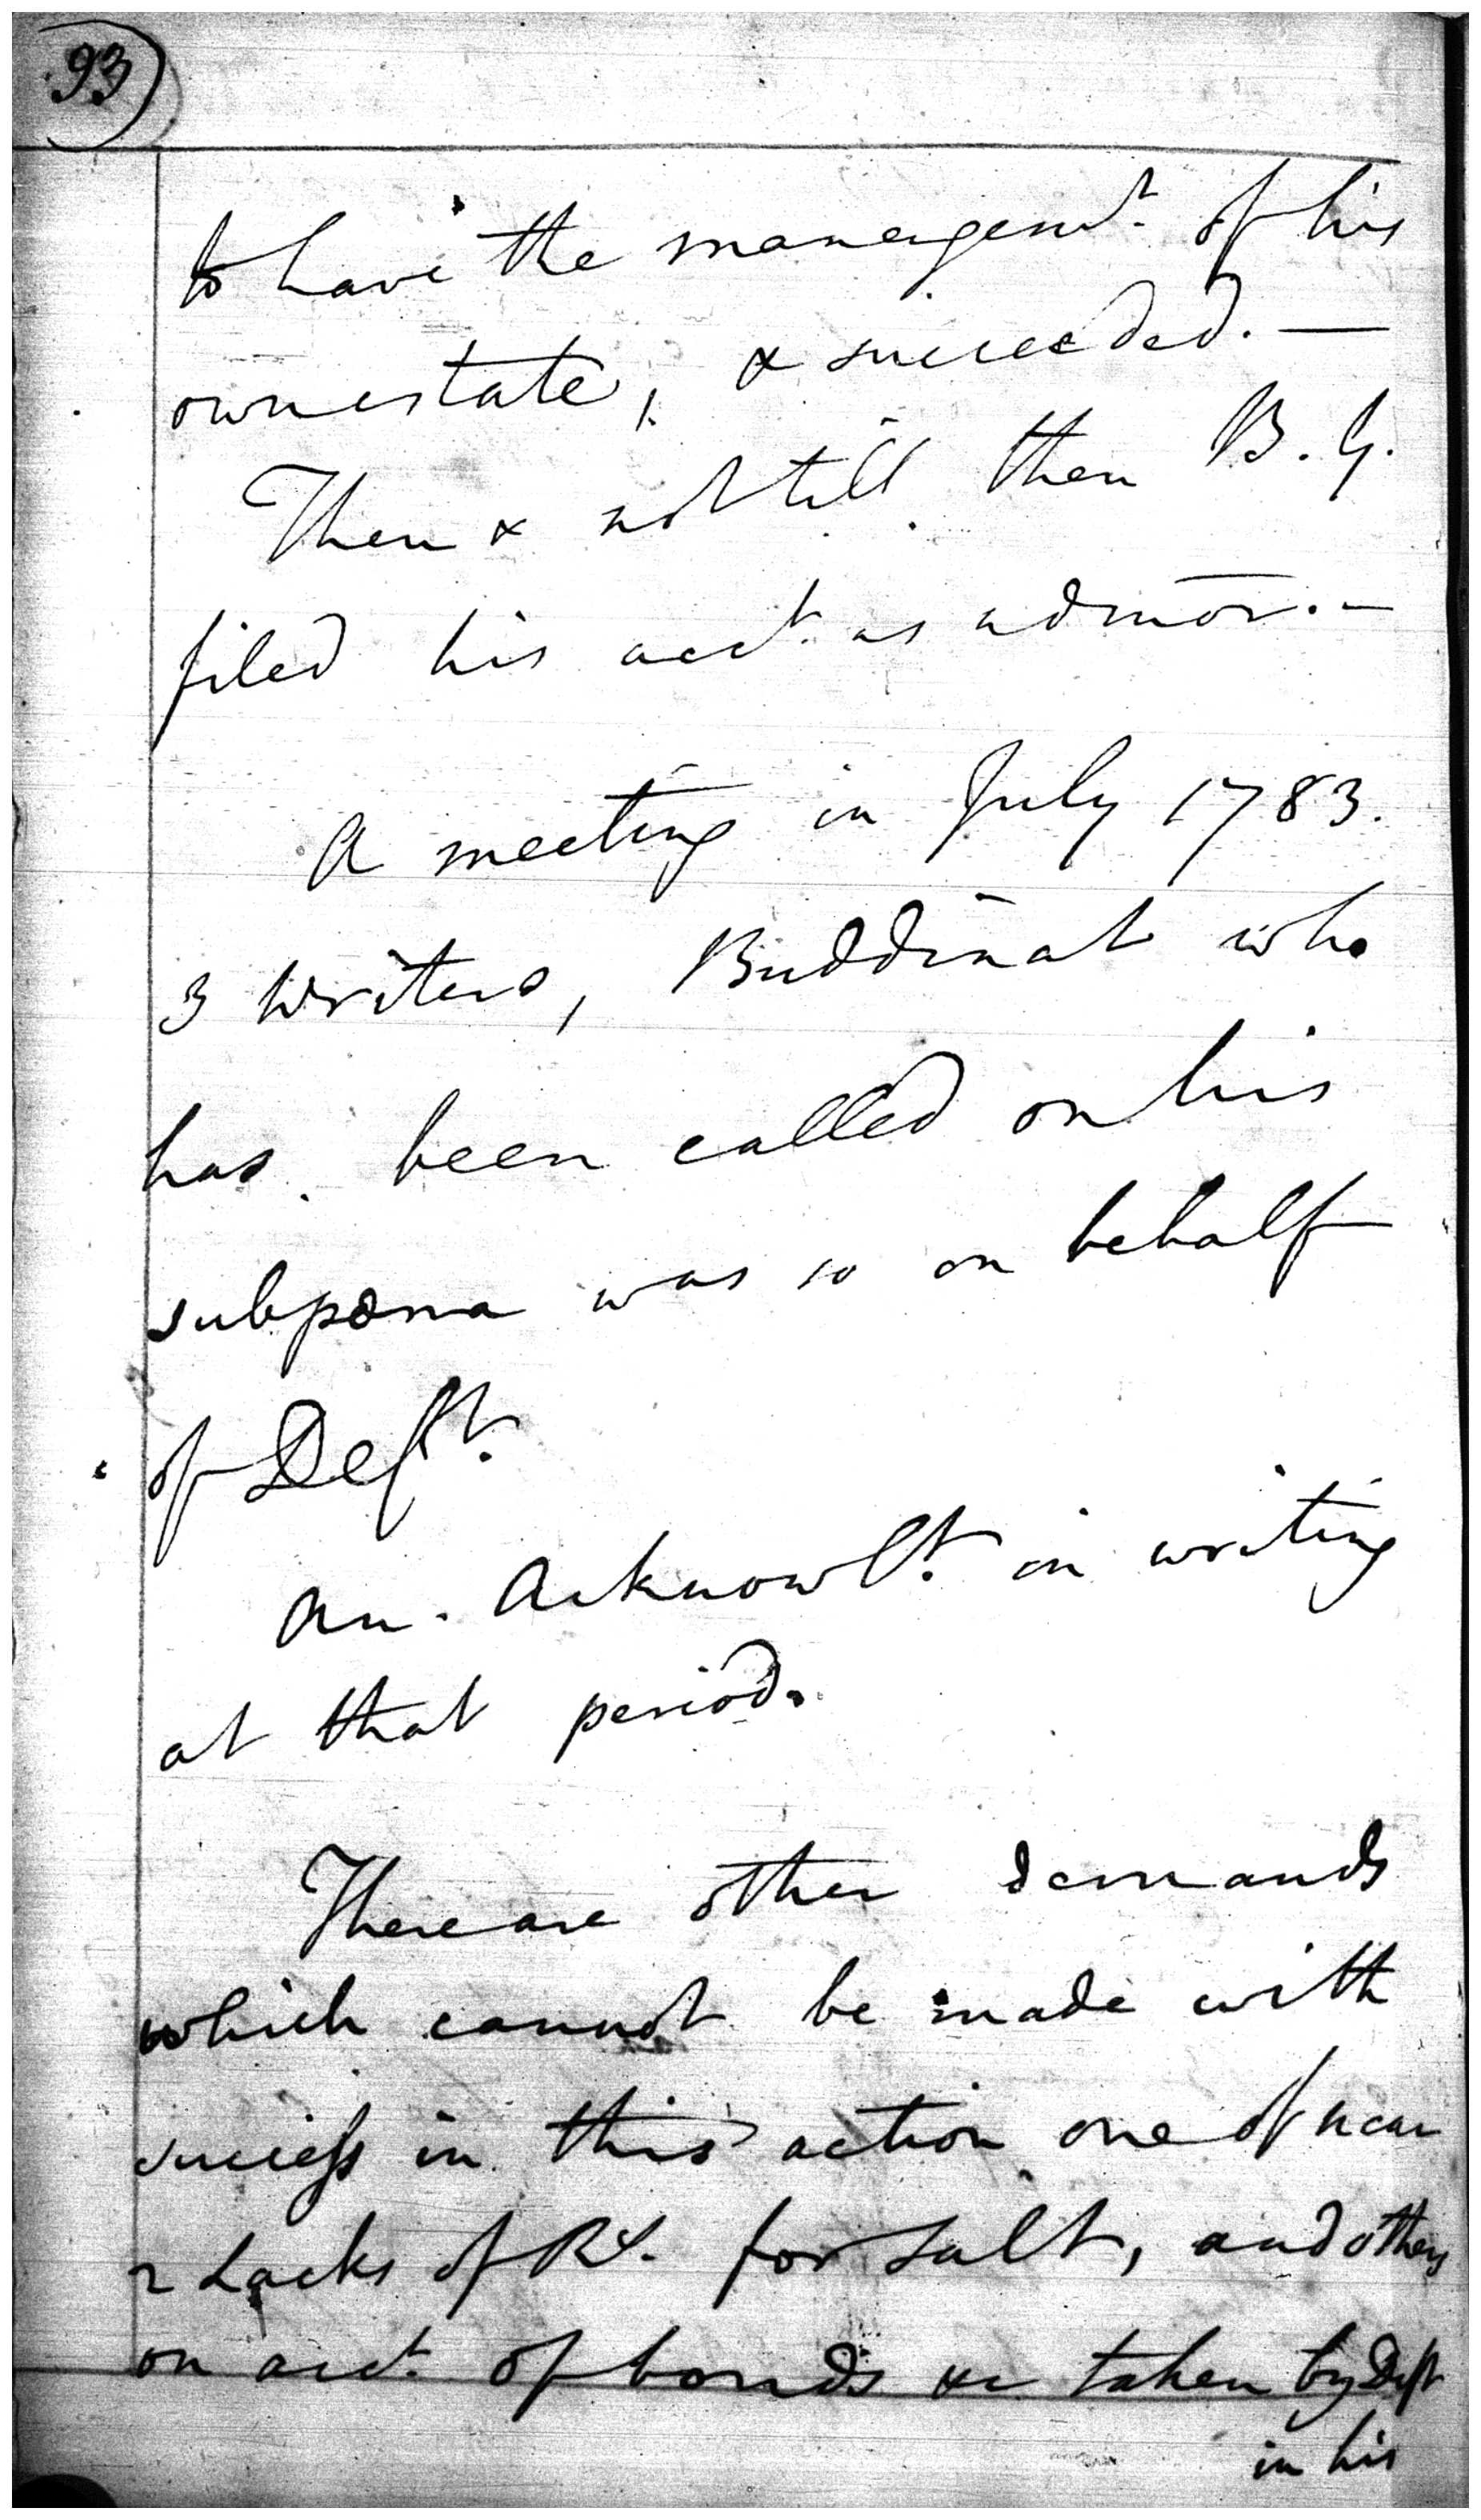 93
to have the managemt. of his
own estate, & succeeded. —
Then & not till then B. G.
filed his acct. as admor. —
A meeting in July 1783.
3 writers, Buddinat who
has been called on his
subpœna was so on behalf
of Deft.
An Acknowlt. in writing
at that period.
There are other demands
which cannot be made with
success in this action one of near
2 Lacks of Rs. for salt, and others
on acct. of bonds &c taken by Deft
in his